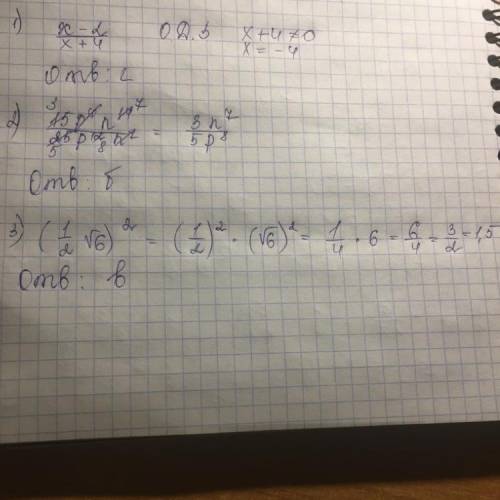 1) x-2/x+4 О.Д.З x+4≠0
x=-4
Отв: с
2) 15p⁴n¹⁴/25p¹²n⁷ = 3n⁷/5p⁸
Отв: б
3) (1/2 √6)² = (1/2)² · (√6)² = 1/4 · 6 = 6/4 = 3/2 = 1,5
Отв: в